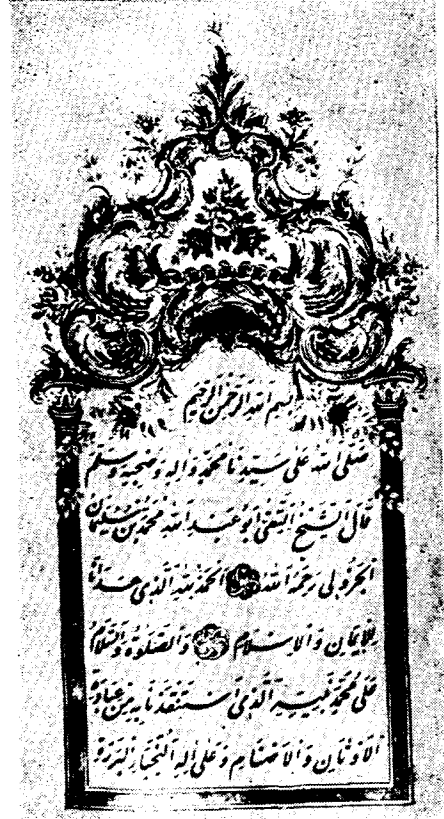 بسم الله الرحمن الرحيم
صلى الله على سيدنا محمد وآله وصحبه وسلم
قال الشيخ التقي ابو عبد الله محمد بن سليمان
الجزولي رحمة الله الحمد لله الذي هدانا
للايمان والاسلام والصلوة والسلام
على محمد نبيه الذي استنقذنا به من عبادة
الاوثان والاصنام وعلى اله النجباء البررة